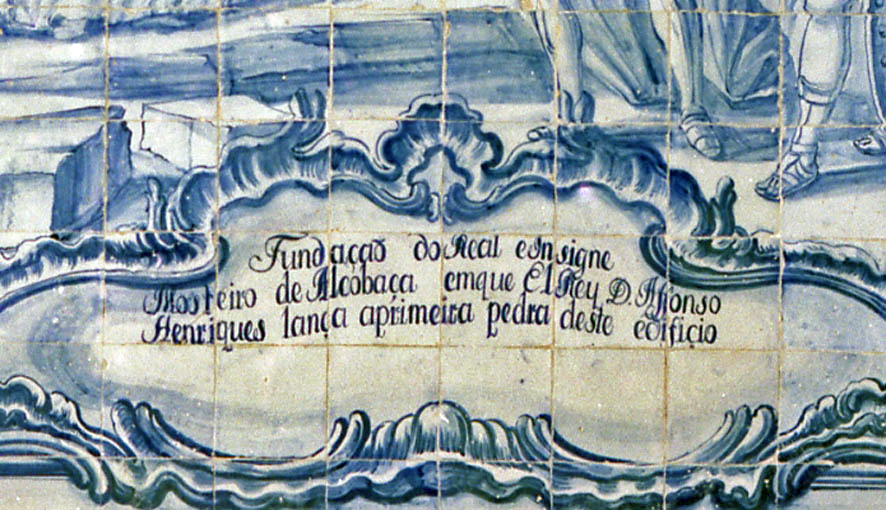 Fundação do Real e Insigne
Mosteiro de Alcobaça emque El Rey D. Affonso
Henriques lança aprimeira pedra deste edificio